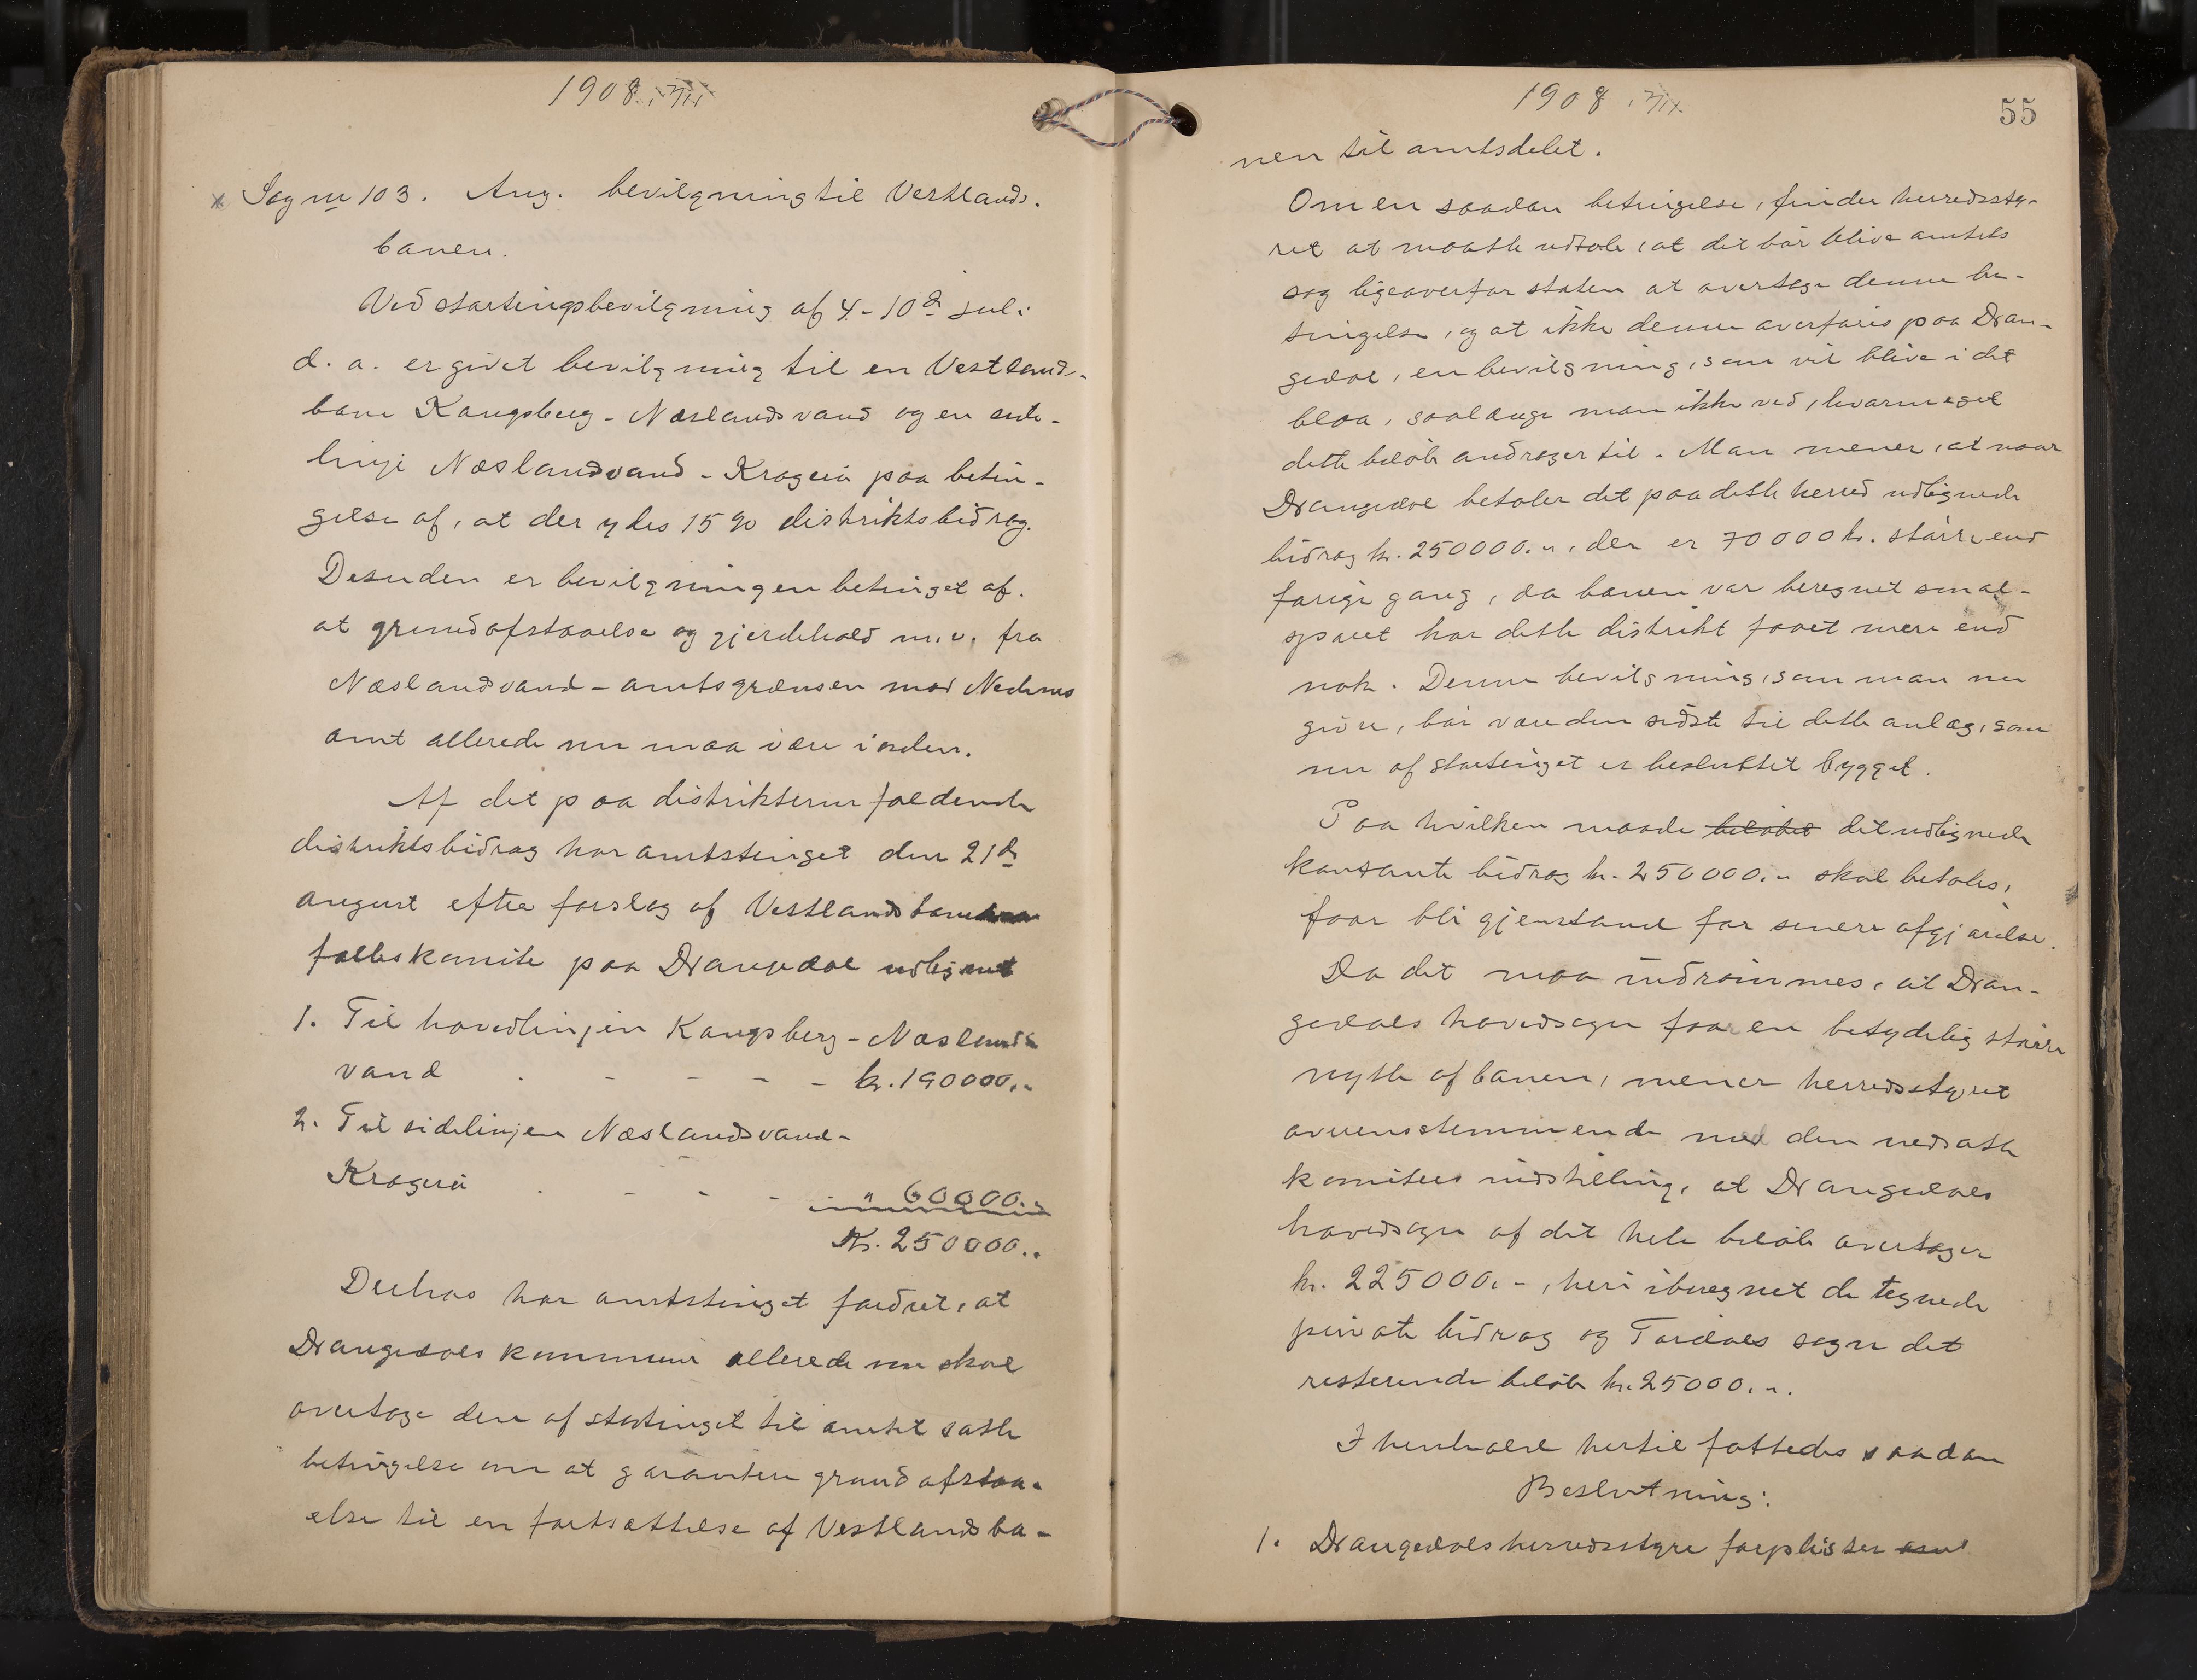 1908. 7/IX
x Sag nr 103. Ang. bevilgning til Vestlands-
banen.
Ved stortingsbevilgning af 4-10de juli
d. a. er givet bevilgning til en Vestlands-
bane Kongsberg - Næslandsvand og en side-
linje Næslandvand - Kragerø paa betin-
gelse af, at der ydes 15 % distriktsbidrag.
Desuden er bevilgningen betinget af.
at grundafstaaelse og gjerdehold m. v. fra
Næslandsvand - amtsgrænsen mod Nedenes
amt allerede nu maa være i orden.
Af det paa distrikterne faldende
distriktsbidrag har amtstinget den 21de
august efter forslag af Vestlandsbanens
fælleskomite paa Drangedal udlignet
1. Til hovedlinjen Kongsberg - Næslands
vand . - - - - kr. 190000.-
2. Til sidelinjen Næslandsvand -
Kragerø . - - - - " 60000.-
Kr. 250000.-
Derhos har amtstinget fordret, at
Drangedals kommune allerede nu skal
overtage den af stortinget til amtet satte
betingelse om at garantere grundafstaa-
else til en fortsættelse af Vestlandsba-
1908 7/IX
55
nen til amtsdelet.
Om en saadan betingelse, finder herredssty-
ret at maatte udtale, at det bør blive amtets
sag ligeoverfor staten at overtage denne be-
tingelse, og at ikke denne overføres paa Dran-
gedal, en bevilgning, som vil blive i det
blaa, saalænge man ikke ved, hvormeget
dette beløb andrager til. Man mener, at naar
Drangedal betaler det paa dette herred udlignede
bidrag kr. 250000.-, der er 70000 kr. større end
forige gang, da banen var beregnet smal-
sporet har dette distrikt faaet mere end
nok. Denne bevilgning, som man nu
giver, bør være den sidste til dette anlæg, som
nu af stortinget er besluttet bygget.
Paa hvilken maade beløbet det udlignede
kontante bidrag kr. 250000.- skal betales,
faar bli gjenstand for senere afgjørelse.
Da det maa indrømmes, at Dran-
gedals hovedsogn faar en betydelig større
nytte af banen, mener herredsstyret
overensstemmende med den nedsatte
komitees indstilling, at Drangedals
hovedsogn af det hele beløb overtager
kr. 225000.-, heri iberegnet de tegnede
private bidrag og Tørdals sogn det
resterende beløb kr. 25000.-.
I henhold hertil fattedes saadan
Beslutning:
1. Drangedals herredsstyre forpligter